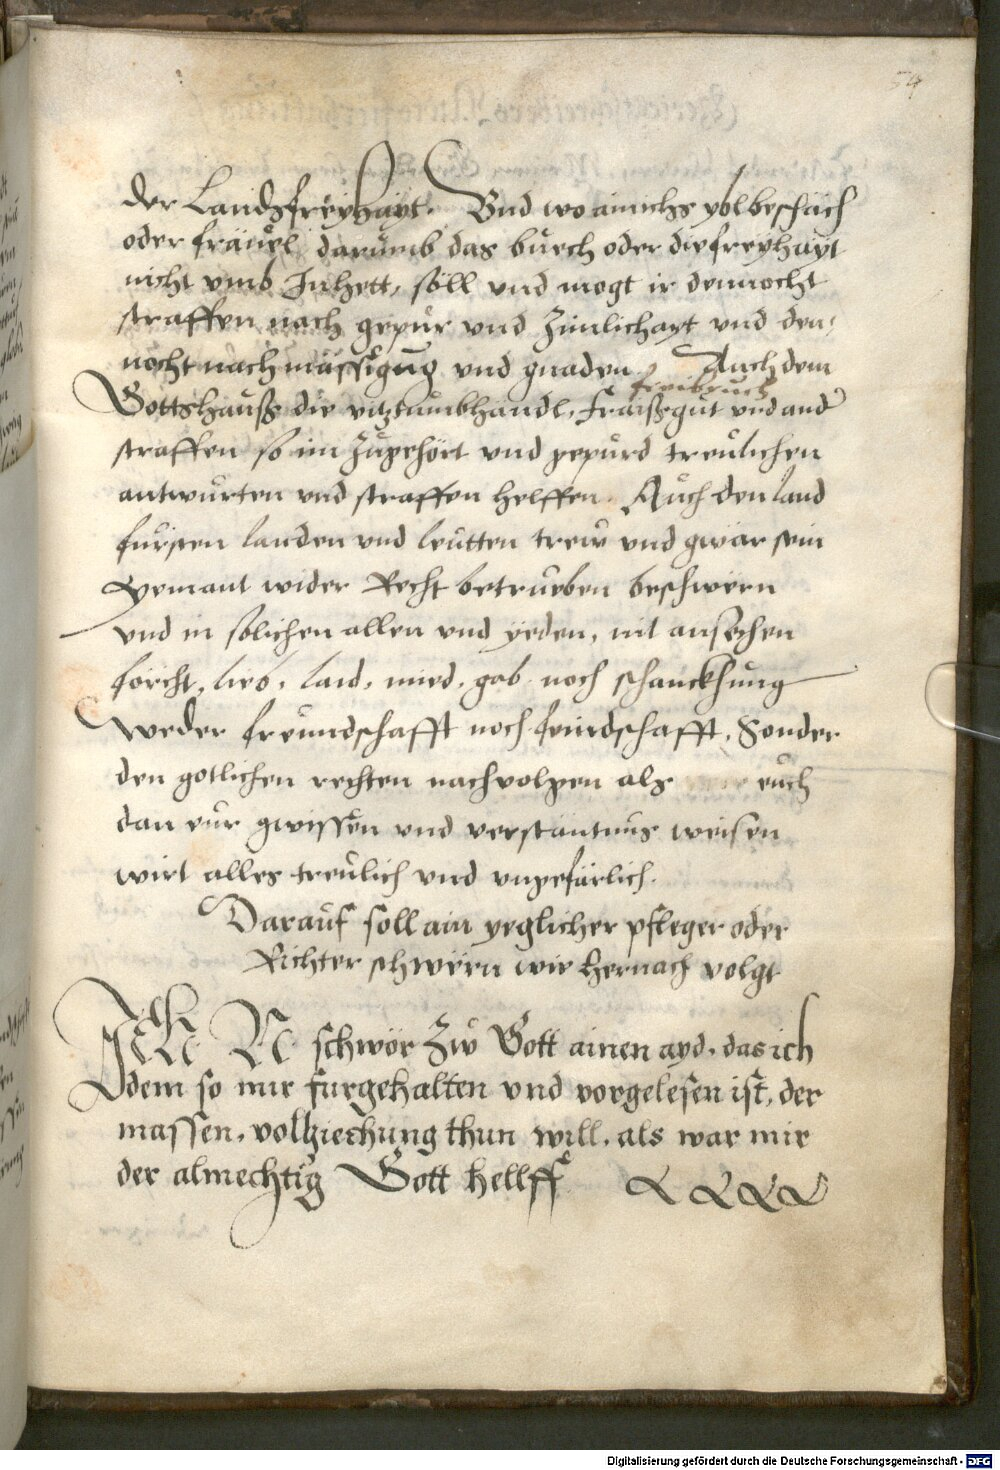 54
der Landsfreyhayt. Vnd wo ainichs ybl beschäch
oder fräuel, darumb das buech oder die freyhayt
nicht vmb Inhett, söll vnd mogt ir dennocht
straffen nach gepur vnd Zimlichayt vnd den,
nocht nach mässigung vnd gnaden. Auch dem
freibruch
Gottshauß die vitztumbhandl, fraißgut vnd and
straffen so im zugehört vnd gepurd treulichen
antwurten vnd straffen helffen. Auch den land
fursten landen vnd leutten trew vnd gwär sein
Yemant wider Recht betrueben beschwern
vnd in solichen allen vnd yeden, nit ansechen
forcht, lieb, laid, mied, gab noch schanckhung
Weder freundschafft noch feindschafft, Sonder
den gotlichen rechten nachvolgen als euch
dan eur gwissen vnd verstäntnus weisen
wirt alles treulich vnd vngefärlich.
Darauf soll ain yeglicher pfleger oder
Richter schwern wie hernach volgt
Ich N. N. schwör Zw Gott ainen ayd, das ich
dem so mir furgehalten vnd vorgelesen ist, der
massen, volziechung thun will, als war mir
der almechtig Gott hellff
Digitalisierung gefördert durch die Deutsche Forschungsgemeinschaft - DFG